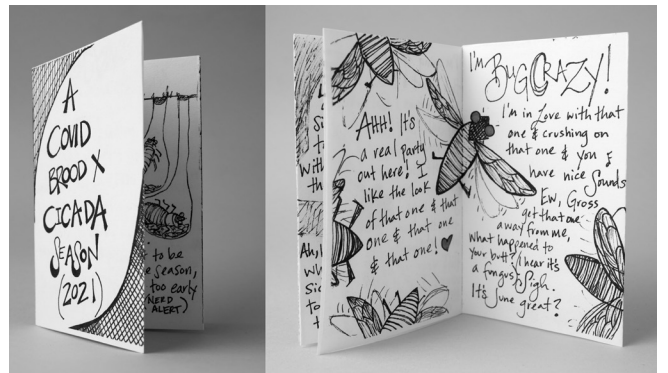 A
COVID
BROOD X
CICADA
SEASON
(2021)
to be
season,
too early
(NERD
ALERT)
Ahh! It's
a real party
out here! I
like the look
of that one & that
one & that one
& that one! ♥
I'm BugCrazy!
I'm in love with that
one & crushing on
that one & you
have nice sounds
Ew, Gross
get that one
away from me,
what happened to
your butt? I hear it's
a fungus. Sigh.
It's June great?